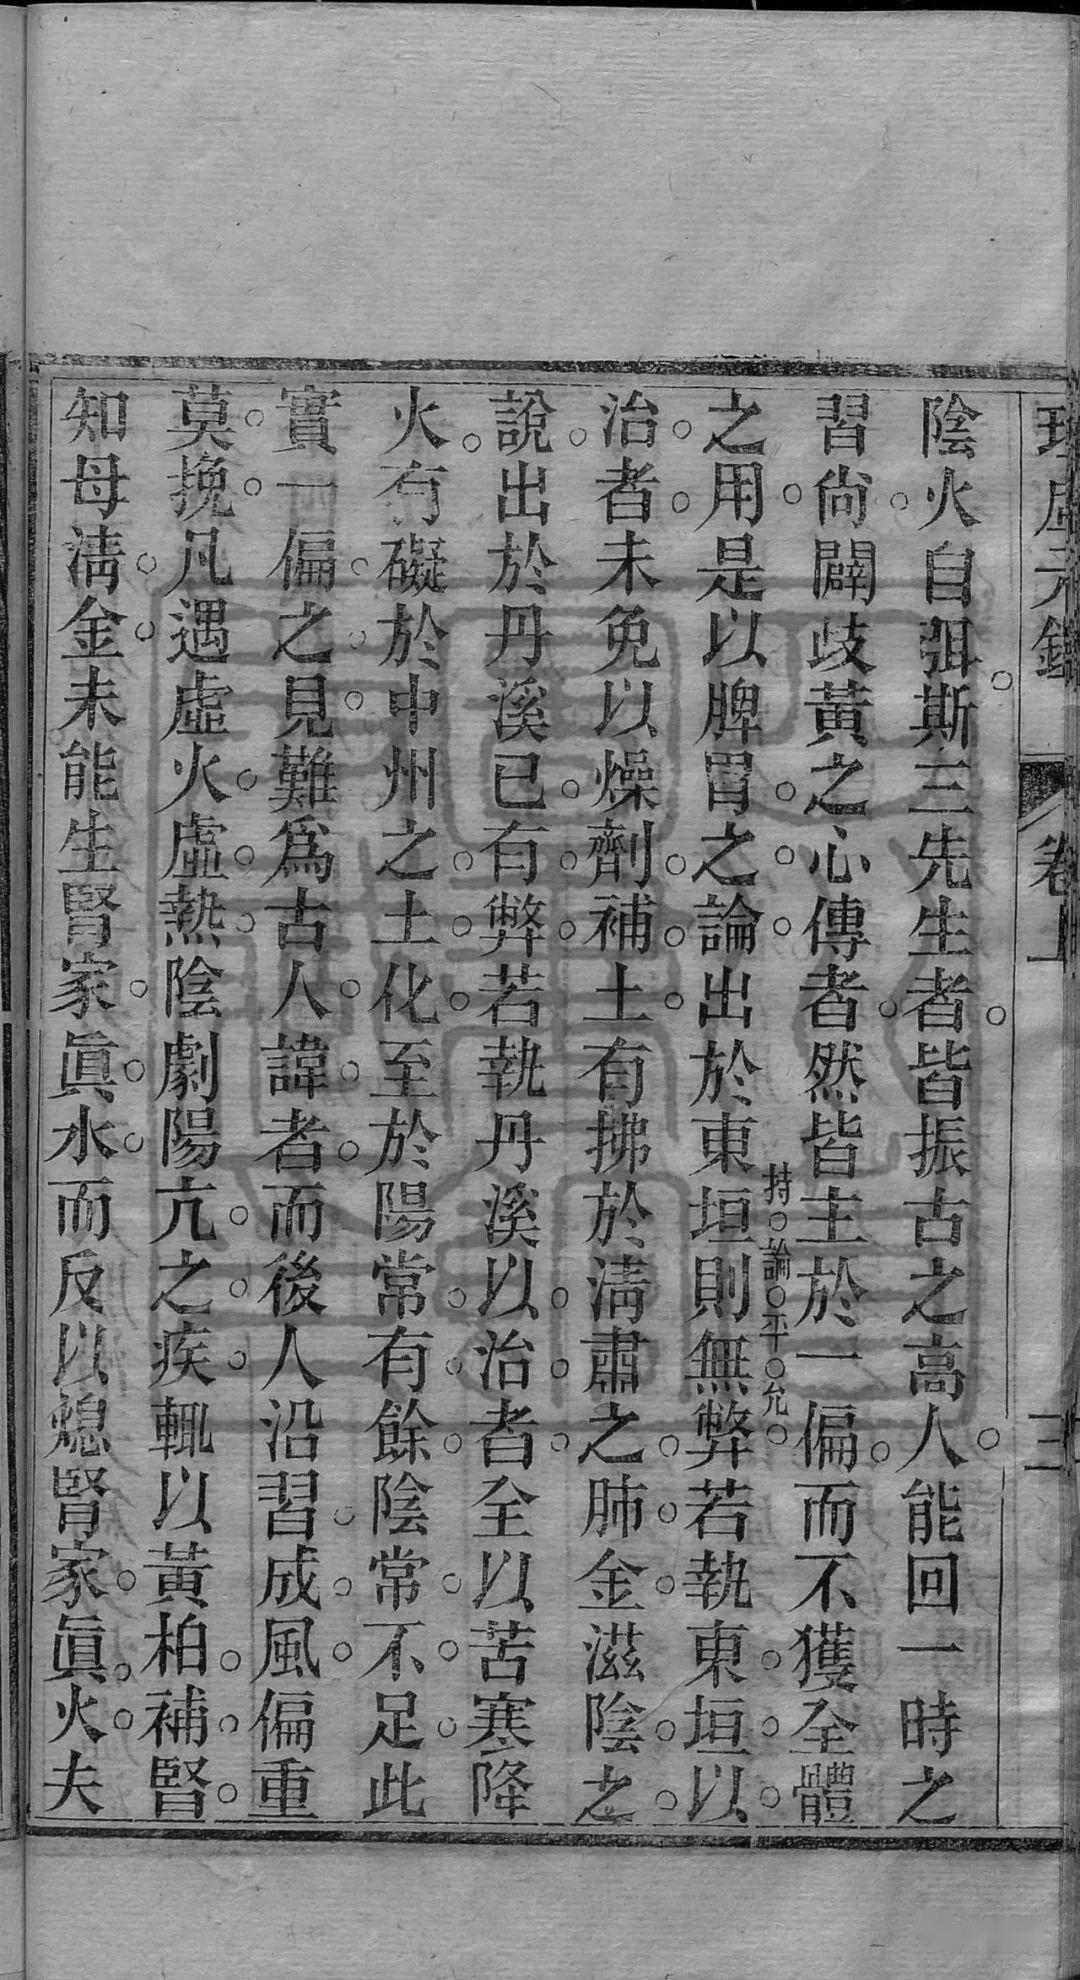 理虛元鑑 卷上 三
陰火自弭斯三先生者皆振古之高人能回一時之
習尚闢歧黃之心傳者然皆主於一偏而不獲全體
之用是以脾胃之論出於東垣則無弊若執東垣以
持論平允
治者未免以燥劑補土有拂於清肅之肺金滋陰之
說出於丹溪已有弊若執丹溪以治者全以苦寒降
火有礙於中州之土化至於陽常有餘陰常不足此
實一偏之見難爲古人諱者而後人沿習成風偏重
莫挽凡遇虛火虛熱陰劇陽亢之疾輒以黃柏補腎
知母清金未能生腎家眞水而反以熄腎家眞火夫